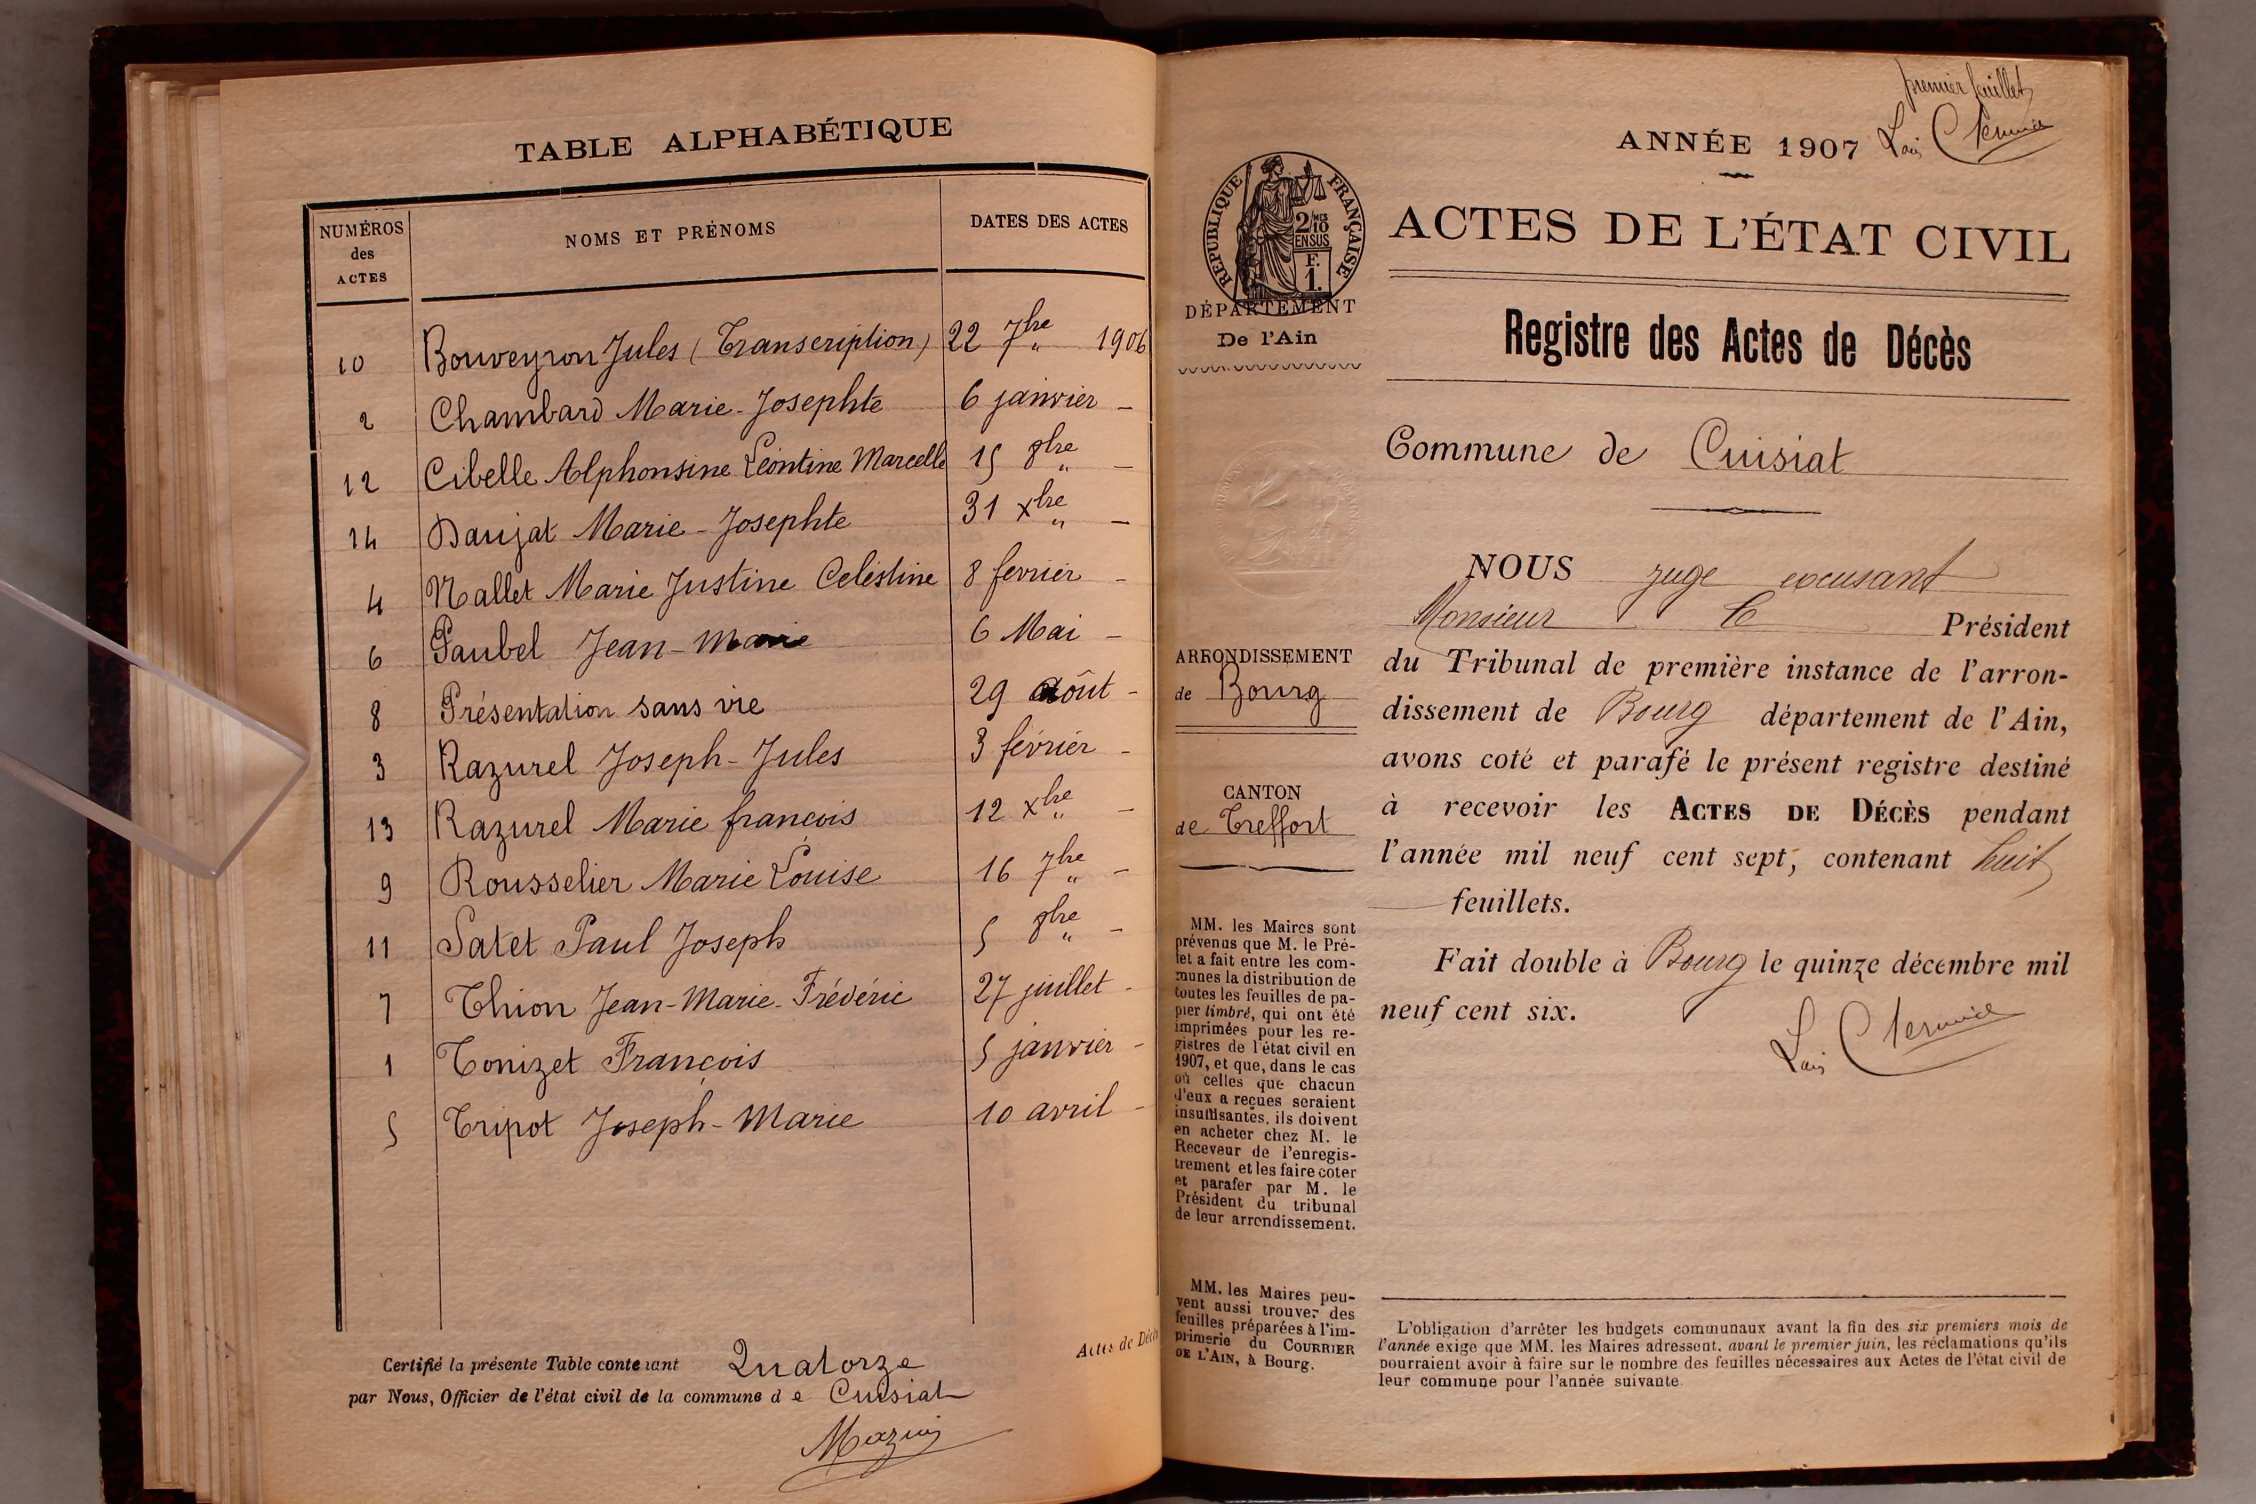 TABLE ALPHABÉTIQUE
NUMÉROS des ACTES NOMS ET PRÉNOMS DATES DES ACTES
10 Bouveyron Jules (Transcription) 22 7bre " 1906
2 Chambard Marie-Josephte 6 janvier -
12 Cibelle Alphonsine Léontine Marcelle 15 8bre " -
14 Daujat Marie-Josephte 31 xbre " -
4 Mallet Marie Justine Celéstine 8 fevrier -
6 Paubel Jean-Marie 6 Mai -
8 Présentation sans vie 29 Août -
3 Razurel Joseph-Jules 3 février -
13 Razurel Marie françois 12 xbre " -
9 Rousselier Marie Louise 16 7bre " -
11 Satet Paul Joseph 5 8bre " -
7 Thion Jean-Marie-Frédéric 27 juillet -
1 Tonizet François 5 janvier -
5 Tripot Joseph-Marie 10 avril -
Certifié la présente Table contenant Quatorze
par Nous, Officier de l'état civil de la commune de Cuisiat
Actes de Décès
premier feuillet
ANNÉE 1907
RÉPUBLIQUE FRANÇAISE
2/10 MES
EN SUS
F.
1.
ACTES DE L'ÉTAT CIVIL
DÉPARTEMENT
De l'Ain
Registre des Actes de Décès
Commune de Cuisiat
NOUS juge excusant
Monsieur le Président
du Tribunal de première instance de l'arron-
dissement de Bourg département de l'Ain,
avons coté et parafé le présent registre destiné
à recevoir les ACTES DE DÉCÈS pendant
l'année mil neuf cent sept, contenant huit
feuillets.
Fait double à Bourg le quinze décembre mil
neuf cent six.
ARRONDISSEMENT
de Bourg
CANTON
de Treffort
MM. les Maires sont
prévenus que M. le Pré-
fet a fait entre les com-
munes la distribution de
toutes les feuilles de pa-
pier timbré, qui ont été
imprimées pour les re-
gistres de l'état civil en
1907, et que, dans le cas
où celles que chacun
d'eux a reçues seraient
insuffisantes, ils doivent
en acheter chez M. le
Receveur de l'enregis-
trement et les faire coter
et parafer par M. le
Président du tribunal
de leur arrondissement.
MM. les Maires peu-
vent aussi trouver des
feuilles préparées à l'im-
primerie du COURRIER
DE L'AIN, à Bourg.
L'obligation d'arrêter les budgets communaux avant la fin des six premiers mois de
l'année exige que MM. les Maires adressent, avant le premier juin, les réclamations qu'ils
pourraient avoir à faire sur le nombre des feuilles nécessaires aux Actes de l'état civil de
leur commune pour l'année suivante.